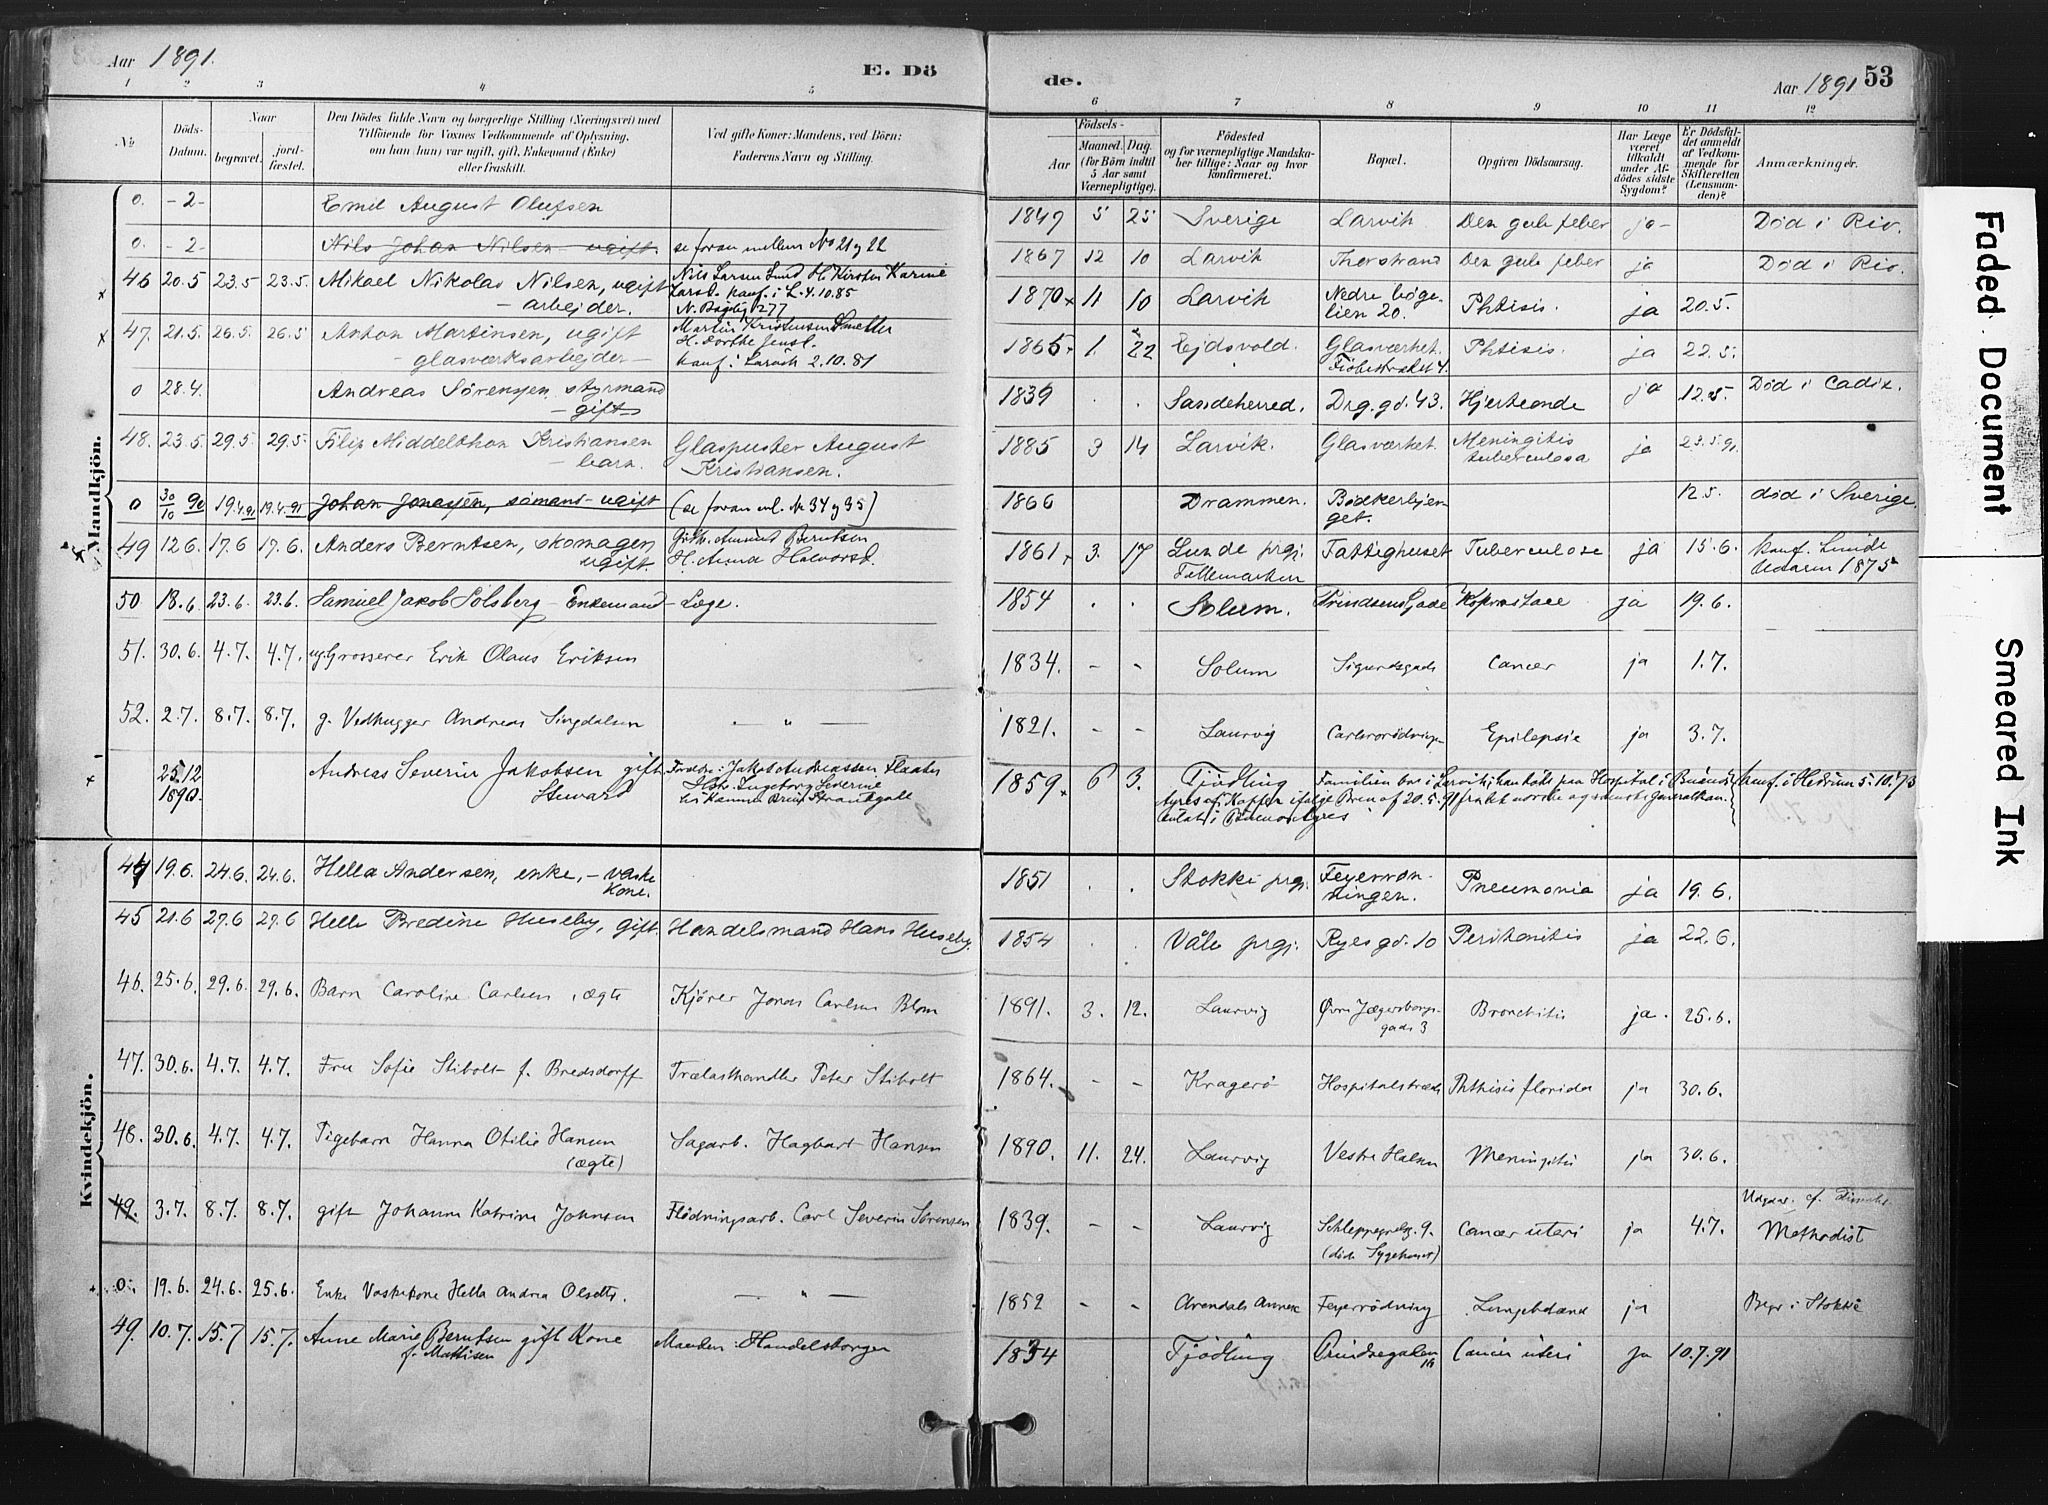 Aar 1891.
E. Dö
1 2 3 4 5
№
Döds-Datum.
Naar
begravet.
jord-fæstet.
Den Dödes fulde Navn og borgerlige Stilling (Næringsvei) med
Tilföiende for Voxnes Vedkommende af Oplysning,
om han (hun) var ugift, gift, Enkemand (Enke)
eller fraskilt.
Ved gifte Koner: Mandens, ved Börn:
Faderens Navn og Stilling.
Mandkjön.
0. - 2 - Emil August Olufsen
0. - 2 Nils Johan Nilsen - ugift. se foran mellem No 21 y 22
46 20.5 23.5 23.5 Mikael Nikolas Nilsen, ugift Nils Larsen Lund H. Kirsten Karine
- arbejder. Larsd. konf. i L. 4.10.85
47. 21.5 26.5 26.5 Anton Martinsen, ugift Martin Kristensen
- glasværksarbejder - H. Dorthe Jensd.
konf. i Larvik 2.10.81
0 28.4. Andreas Sørensen, styrmand
- gift
48. 23.5 29.5 29.5 Filip Middelthon Kristiansen Glaspuster August
- barn. Kristiansen.
0 30/10 90 19.4.91 19.4.91 Johan Jonassen, sømand - ugift (se foran ml. Nr 34 y 35)
49 12.6. 17.6 17.6. Anders Berntsen, skomager, Berntsen
ugift. H. Anna Halvorsd.
50 18.6. 23.6. 23.6. Samuel Jakob Solsberg - Enkemand - Læge.
51. 30.6. 4.7. 4.7. ug. Grosserer Erik Olaus Eriksen
52. 2.7. 8.7. 8.7. g. Vedhugger Andreas Singdalsen — " —
25.12 1890. Andreas Severin Jakobsen gift Forældre: Jakob Andreassen
Steward Ingeborg Severine
Kvindekjön.
44 19.6. 24.6. 24.6. Hella Andersen, enke, - vaske
kone.
45 21.6 27.6 27.6 Helle Bredine Huseby, gift. Handelsmand Hans Huseby.
46. 25.6. 29.6. 29.6. Barn Caroline Carlsen, ægte Kjører Jonas Carlsen Blom
47. 30.6. 4.7. 4.7. Fru Sofie Stibolt f. Bredsdorff Trælasthandler Peter Stibolt
48. 30.6. 4.7. 4.7. Pigebarn Hanna Otilie Hansen Sagarb. Hagbart Hansen
(ægte)
49. 3.7. 8.7. 8.7. gift Johanne Katrine Johnsen Flødningsarb. Carl Severin Sørensen
0. 19.6. 24.6. 25.6. Enke Vaskekone Hella Andrea Olsdtr. — " —
49. 10.7. 15.7 15.7. Anne Marie Berntsen gift Kone Manden: Handelsborger
f. Mathisen
de.
Aar 1891 53
6 7 8 9 10 11 12
Födsels-
Aar
Maaned. Dag.
(for Börn indtil
5 Aar samt
Værnepligtige).
Födested
og for værnepligtige Mandska-
ber tillige: Naar og hvor
konfirmeret.
Bopæl.
Opgiven Dödsaarsag.
Har Læge
været
tilkaldt
under Af-
dödes sidste
Sygdom?
Er Dödsfal-
det anmeldt
af Vedkom-
mende for
Skifteretten
(Lensman-
den)?
Anmærkninger.
1849 5 25 Sverige Larvik Den gule feber ja - Død i Rio.
1867 12 10 Larvik Thorstrand Den gule feber ja Død i Rio.
1870 11 10 Larvik Nedre bøge- Phtisis. ja 20.5.
lien 20.
1865 1. 22 Ejdsvold. Glasværket. Phtisis. ja 22.5.
1839 . . Sandeherred. Drg.gd. 43. Hjerteonde ja 12.5. Død i Cadix.
1885 3 14 Larvik. Glasværket. Meningitis ja 23.5.91.
tuberculosa
1866 Drammen. Bødkerbjer- 12.5. død i Sverige.
get.
1861 3. 17 Lunde prgj. Fattighuset Tuberculose ja 15.6. konf. Lunde
Tellemarken 1875
1854 . . Solum. Prindsens Gade ja 19.6.
1834. - - Solum Sigurdsgade Cancer ja 1.7.
1821. - - Laurvig Epilepsie ja 3.7.
1859 6 3. Tjødling Familien bor i Larvik; han døde paa Hospital i Buenos konf. i Hedrum 5.10.73
Ayres af Kopper ifølge Brev af 20.5.91 fra det norske og svenske Generalkon-
sulat i Buenos Ayres
1851 . . Stokke prgj. Feyerrød- Pneumonia ja 19.6.
ningen.
1854 . . Våle prgj. Ryesgd. 10 Peritonitis ja 22.6.
1891. 3. 12. Laurvig Øvre Jægersborgs- Bronchitis ja. 25.6.
gade 3
1864. - - Kragerø Hospitalstræde Phthisis florida ja 30.6.
1890. 11. 24. Laurvig Vestre Halsen Meningitis ja 30.6.
1839. - - Laurvig Schleppegrelsg. 9. Cancer uteri ja 4.7. Methodist
(død Sygehuset)
1852 - - Arendals Annex Feyerrødning Lungebetænd ja Begr. i Stokke
1834 Tjødling Prindsegaden Cancer uteri ja 10.7.91
16
Faded Document
Smeared Ink